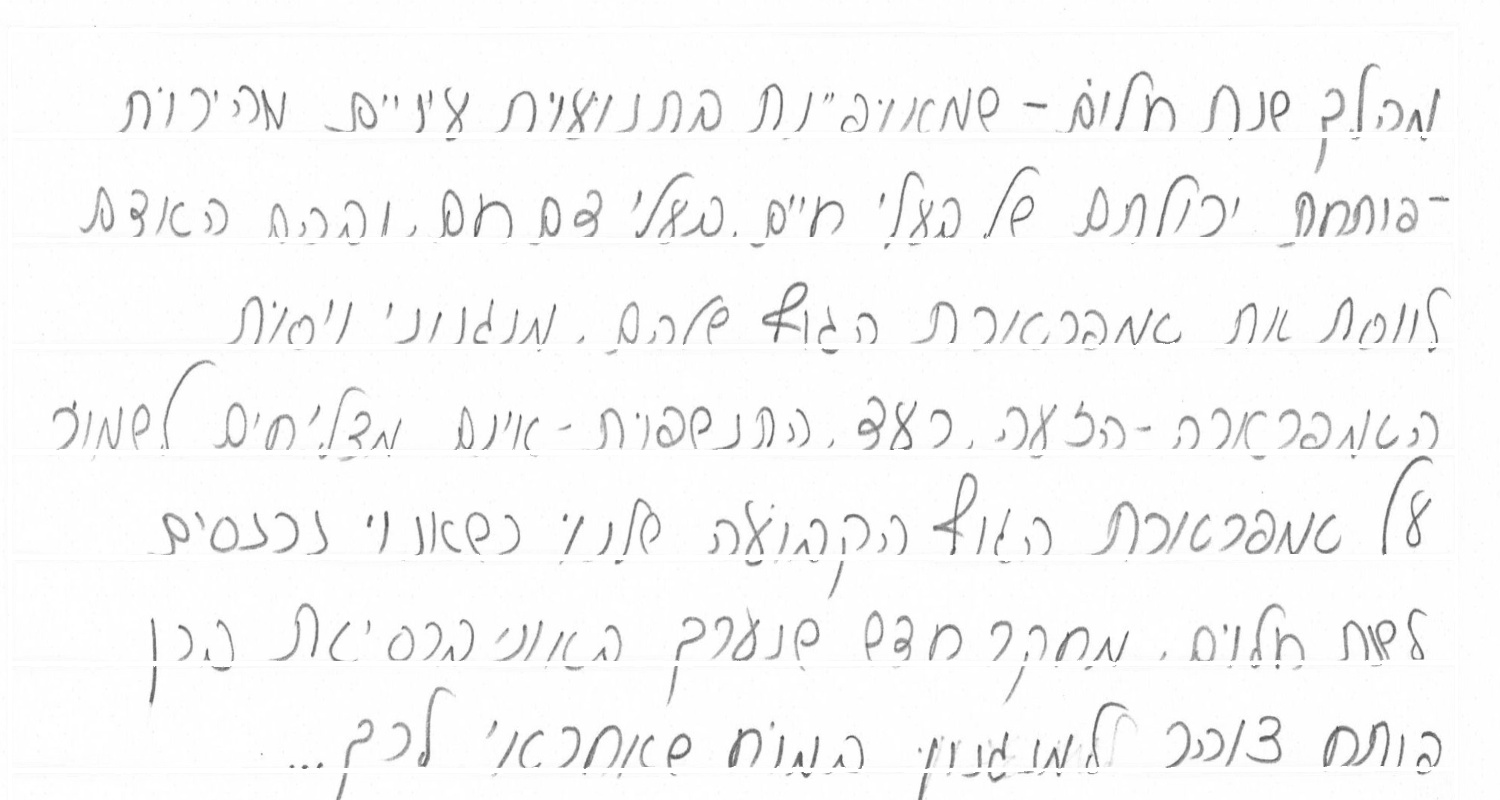 מהלך שנת חלום - שמאופיינת בתנועות עיניים מהירות
- פוחתת יכולתם של בעלי חיים בעלי דם חם, ובהם האדם
לווסת את טמפרטורת הגוף שלהם. מנגנוני ויסות
הטמפרטורה - הזעה, רעד, התנשפות - אינם מצליחים לשמור
על טמפרטורת הגוף הקבועה שלנו כשאנו נכנסים
לשנת חלום. מחקר חדש שנערך באוניברסיטת ברן
פותח צוהר למנגנון המוח שאחראי לכך...